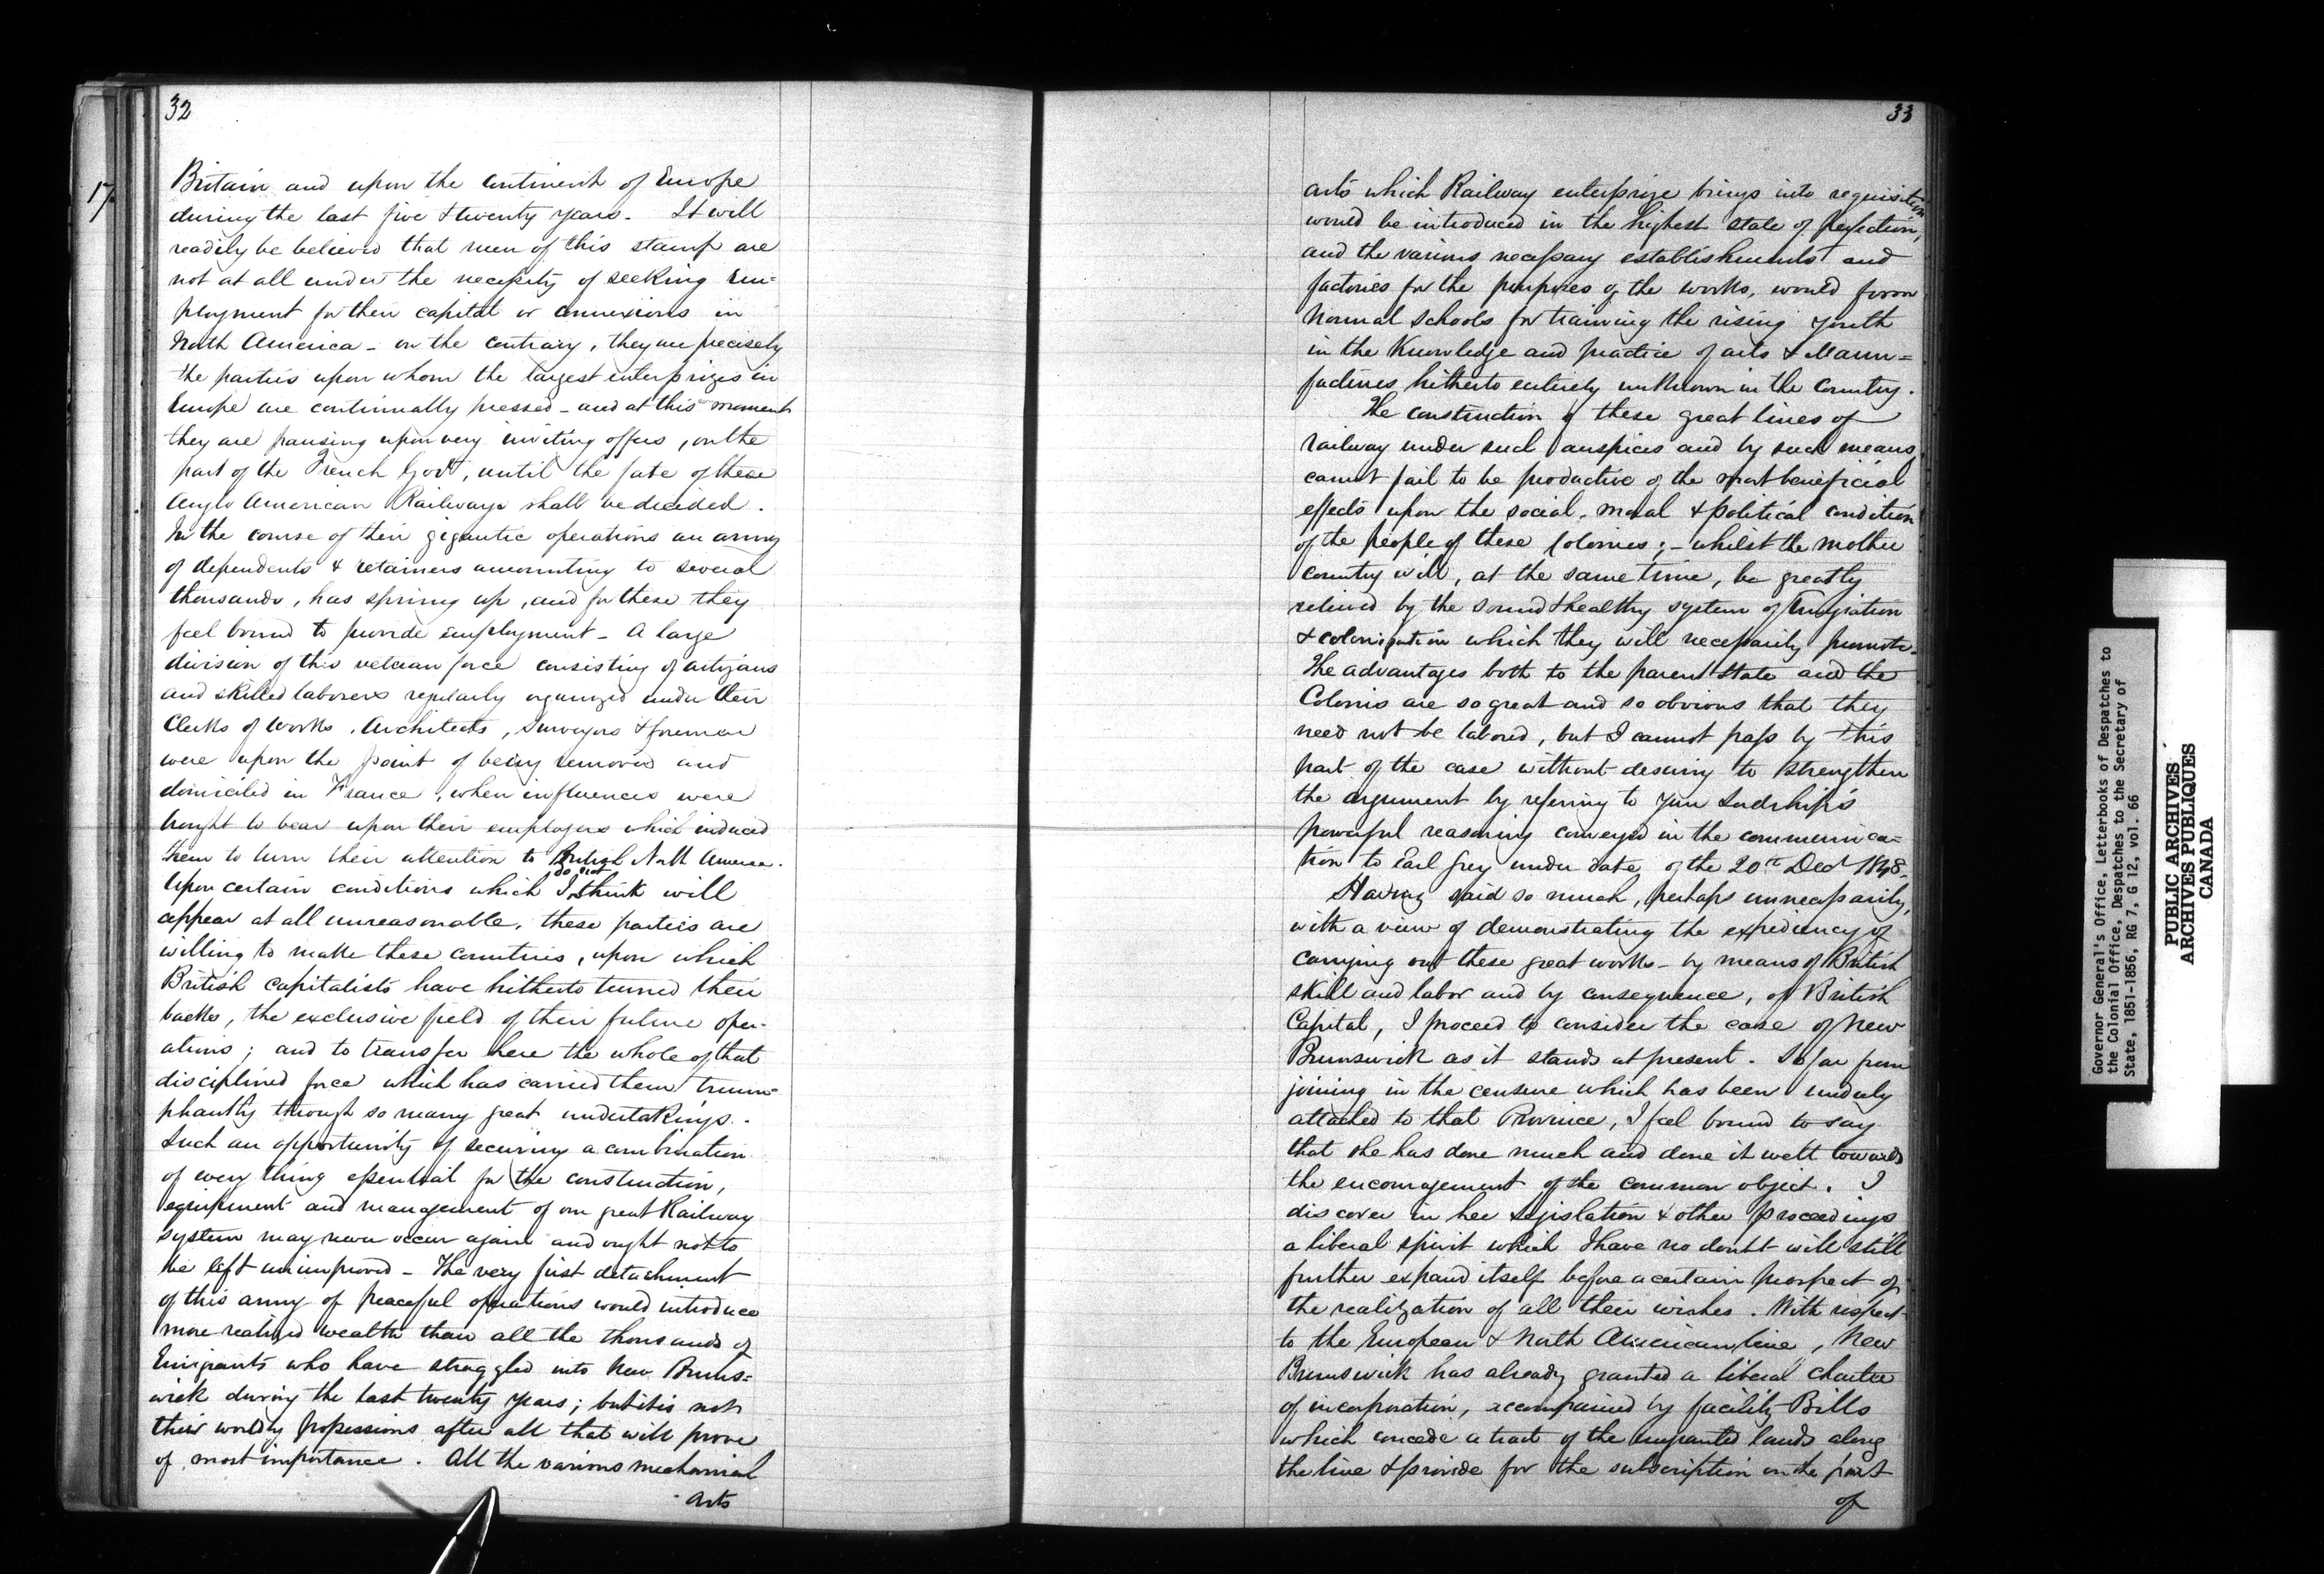 32
17
Britain and upon the Continent of Europe
during the last five & twenty years. It will
readily be believed that men of this stamp are
not at all under the necessity of seeking em=
ployment for their capital or connexions in
North America - on the contrary, they are precisely
the parties upon whom the largest enterprizes in
Europe are continually pressed - and at this moment
they are pausing upon very inviting offers, on the
part of the French Govt, until the fate of these
Anglo American Railways shall be decided.
In the course of their gigantic operations an army
of dependents & retainers amounting to several
thousands, has sprung up, and for these they
feel bound to provide employment - A large
division of this veteran force consisting of artizans
and skilled laborers regularly organized under their
Clerks of Works, Architects, Surveyors & foremen
were upon the point of being removed and
domiciled in France, when influences were
brought to bear upon their employers which induced
them to turn their attention to British North America.
Upon certain conditions which I do not think will
appear at all unreasonable, these parties are
willing to make these countries, upon which
British capitalists have hitherto turned their
backs, the exclusive field of their future oper-
ations; and to transfer here the whole of that
disciplined force which has carried them trium-
phantly through so many great undertakings.
Such an opportunity of securing a combination
of every thing essential for the construction,
equipment and management of our great Railway
system may never occur again and ought not to
be left unimproved - The very first detachment
of this army of peaceful operations would introduce
more realized wealth than all the thousands of
Emigrants who have straggled into New Bruns=
wick during the last twenty years; but it is not
their worldly possessions after all that will prove
of most importance. All the various mechanical
arts
33
arts which Railway enterprize brings into requisition
would be introduced in the highest state of perfection,
and the various necessary establishments and
factories for the purposes of the works, would form
Normal Schools for training the rising youth
in the knowledge and practice of arts & Manu=
factures hitherto entirely unknown in the Country.
The construction of these great lines of
railway under such auspices and by such means,
cannot fail to be productive of the most beneficial
effects upon the social, moral & political condition
of the people of these Colonies; - whilst the mother
country will, at the same time, be greatly
relieved by the sound & healthy system of Emigration
& colonization which they will necessarily promote.
The advantages both to the parent State and the
Colonies are so great and so obvious that they
need not be labored, but I cannot pass by this
part of the case without desiring to strengthen
the argument by refering to your Lordship's
powerful reasoning conveyed in the communica-
tion to Earl Grey under date of the 20th Decr 1848.
Having said so much, perhaps unnecessarily,
with a view of demonstrating the expediency of
carrying out these great works - by means of British
skill and labor and by consequence, of British
Capital, I proceed to consider the case of New
Brunswick as it stands at present. So far from
joining in the censure which has been unduly
attached to that Province, I feel bound to say
that she has done much and done it well towards
the encouragement of the common object. I
discover in her Legislation & other proceedings
a liberal spirit which I have no doubt will still
further expand itself before a certain prospect of
the realization of all their wishes. With respect
to the European & North American line, New
Brunswick has already granted a liberal charter
of incorporation, accompanied by facility Bills
which concede a tract of the ungranted lands along
the line & provide for the subscription on the part
of
Governor General's Office, Letterbooks of Despatches to
the Colonial Office, Despatches to the Secretary of
State, 1851-1856, RG 7, G 12, vol. 66
PUBLIC ARCHIVES
ARCHIVES PUBLIQUES
CANADA